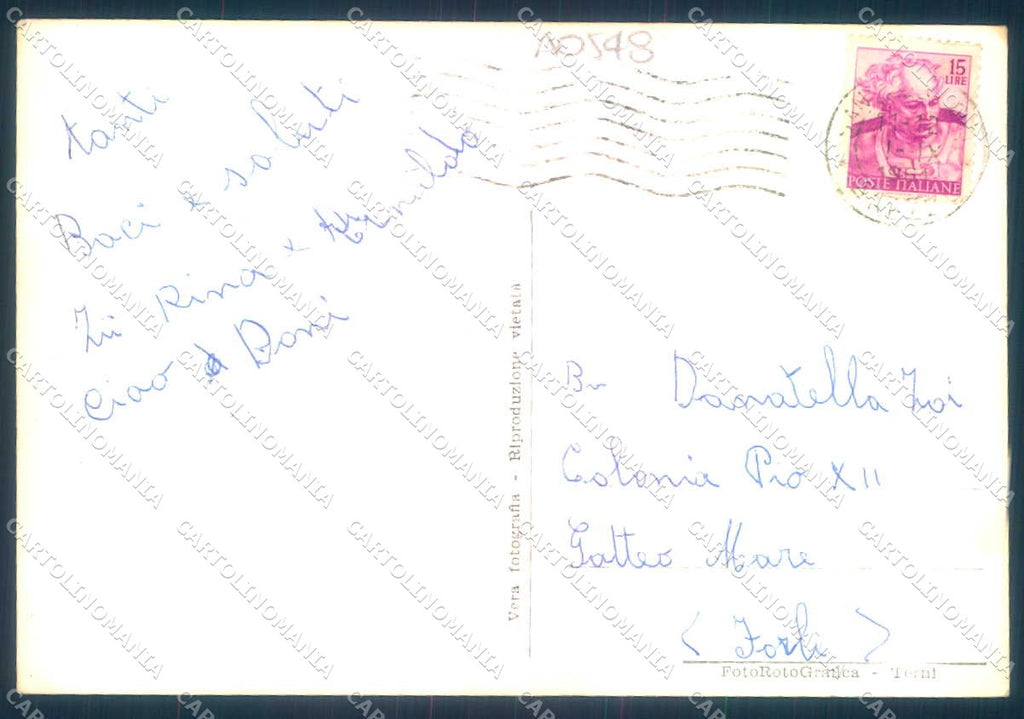 NO548
15
LIRE
POSTE ITALIANE
tanti
Baci × saluti
Zii Rina ×
ciao Dani
Vera fotografia - Riproduzione vietata
Donatella Zoi
Colonia Pio XII
Gatteo Mare
(Forlì)
FotoRotoGrafica - Terni
CARTOLINOMANIA